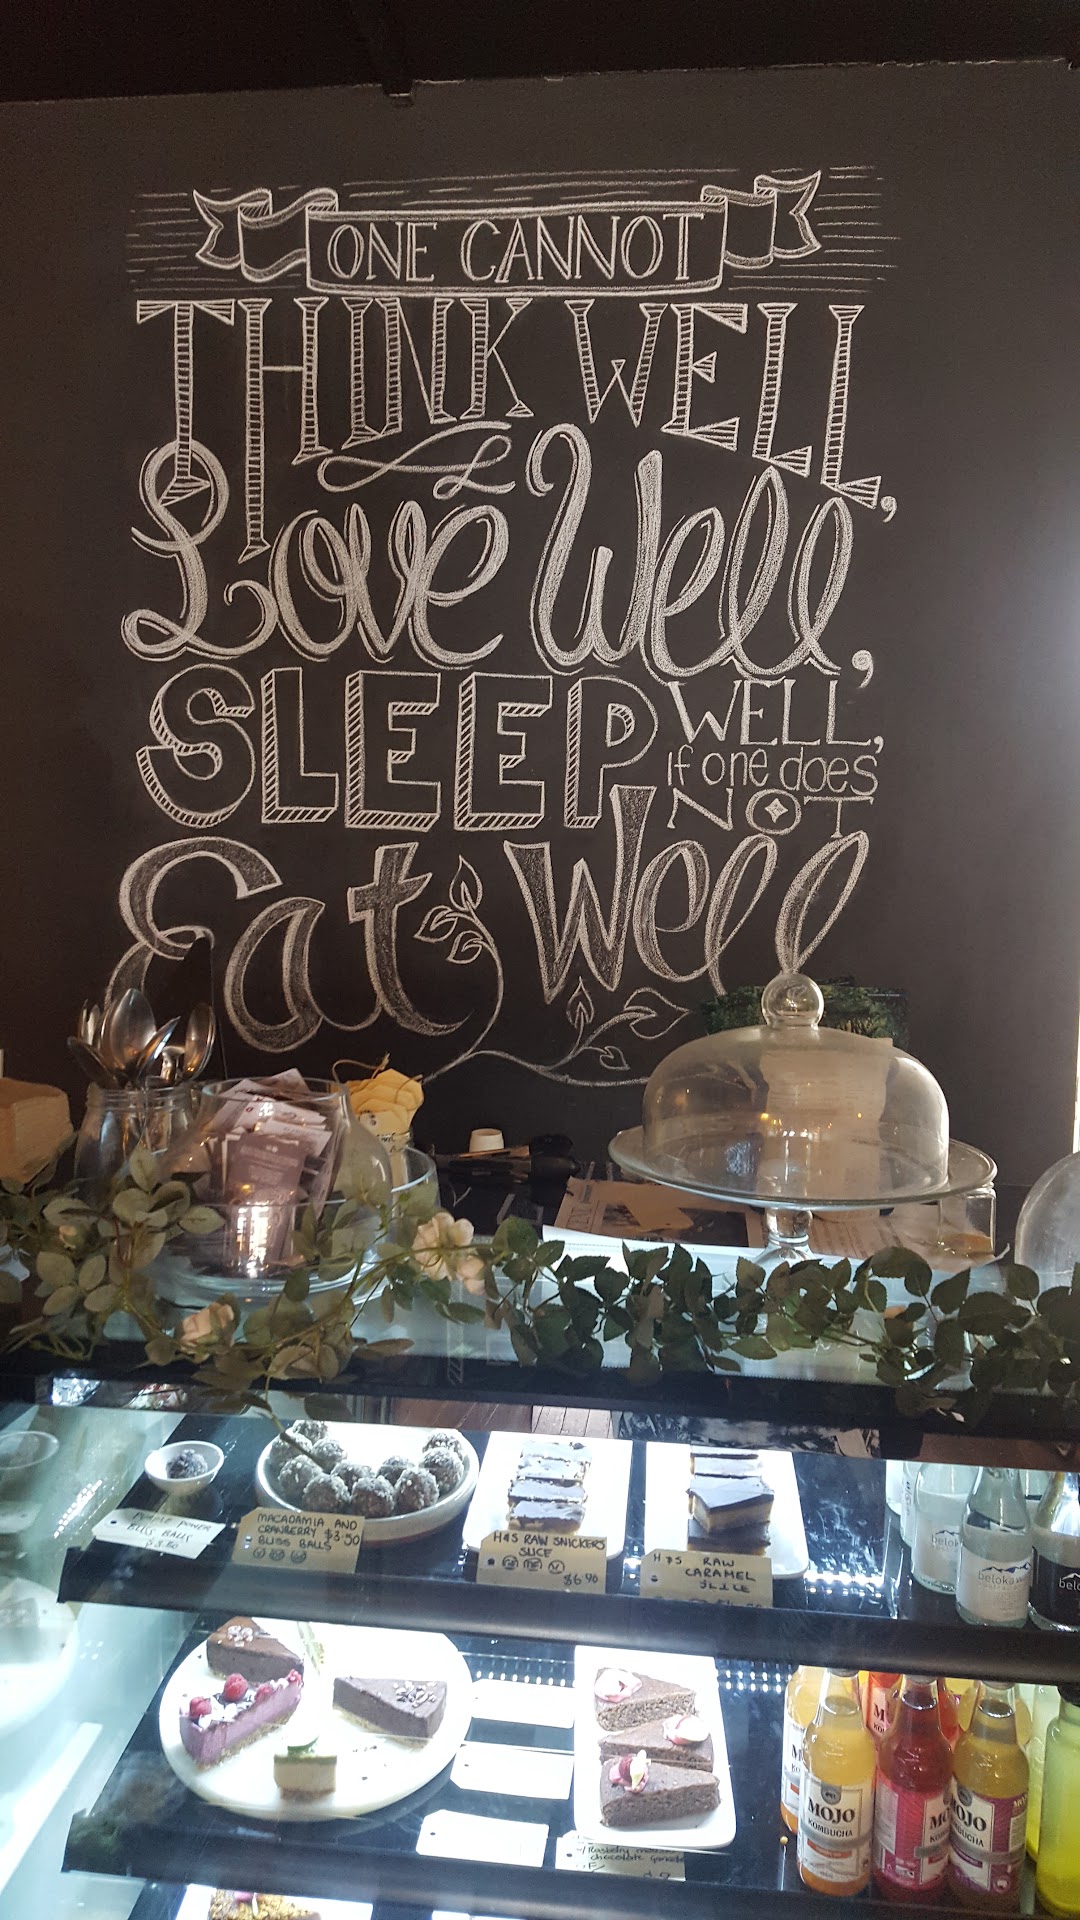 ONE CANNOT
THINK WELL,
Love Well,
SLEEP WELL,
if one does
NOT
Eat Well
PURPLE POWER
BLISS BALLS
MACADAMIA AND
CRANBERRY $3.50
BLISS BALLS
H&S RAW SNICKERS
SLICE
$6.90
H&S RAW
CARAMEL
SLICE
beloka
beloka
MOJO
KOMBUCHA
MOJO
KOMBUCHA
chocolate ganache